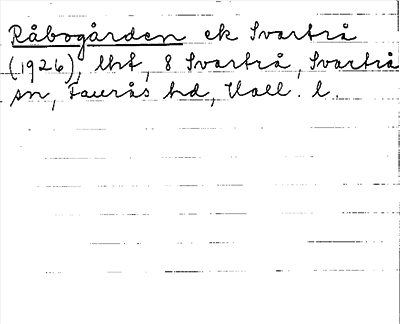 Råbogården ek Svartrå
(1926), lht, 8 Svartrå, Svartrå
sn, Faurås hd, Hall. l.